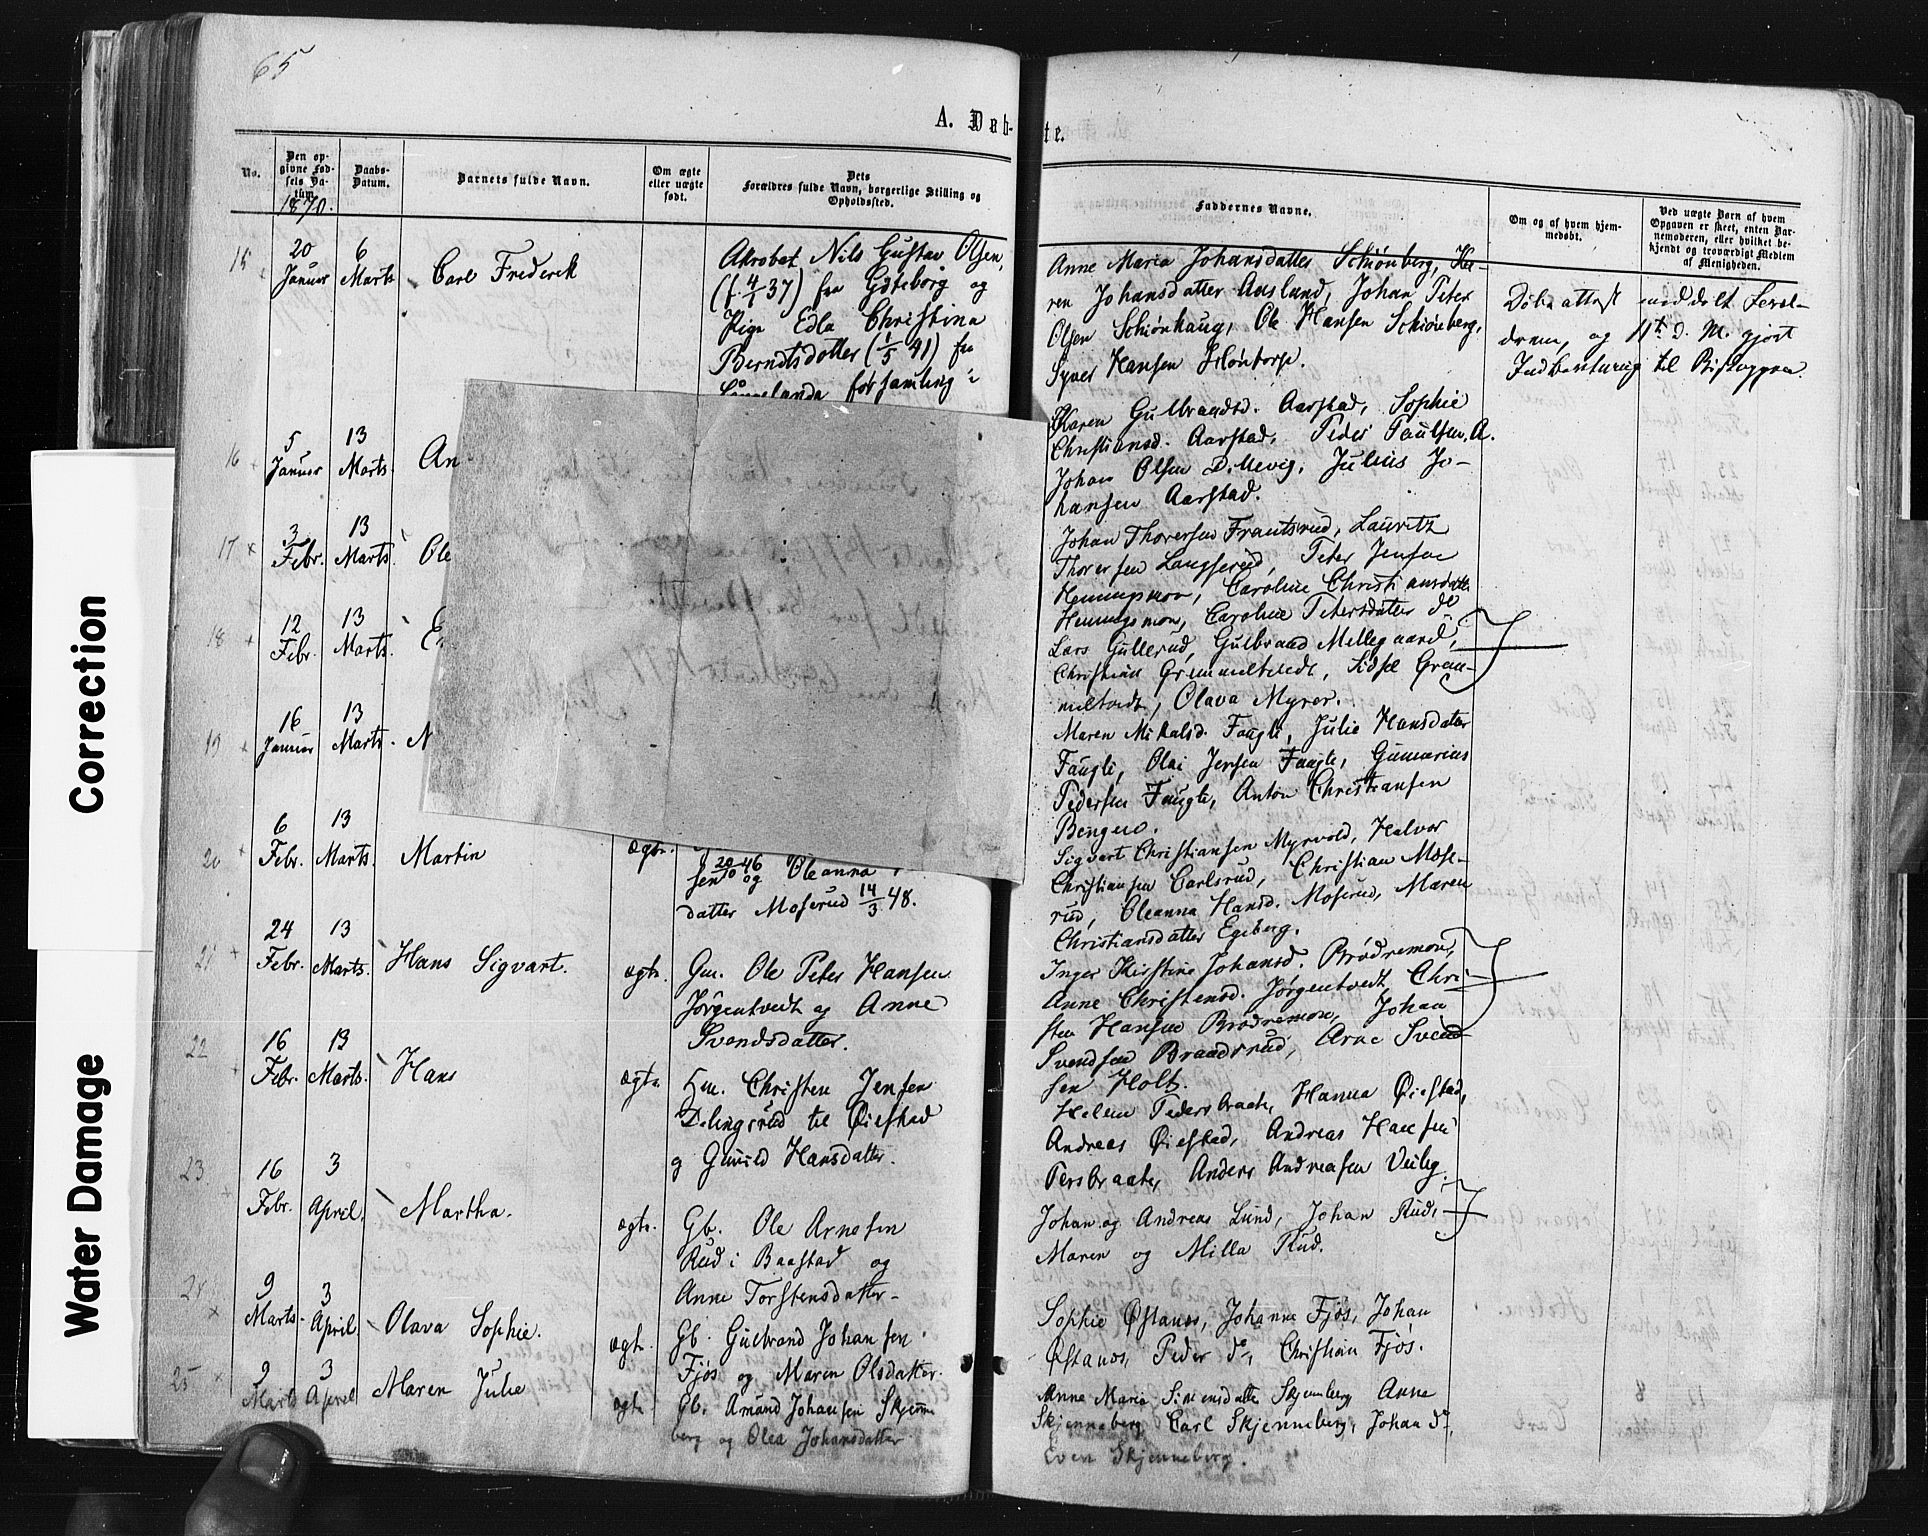 65
A. Dåb-
te.
No.
Den op-
givne Fød-
sels Da-
tum.
1870.
Daabs-
Datum.
Barnets fulde Navn.
Om ægte
eller uægte
født.
Dets
Forældres fulde Navn, borgerlige Stilling og
Opholdssted.
Faddernes Navne.
Om og af hvem hjem-
medøbt.
Ved uægte Børn af hvem
Opgaven er skeet, enten Bar-
nemoderen, eller hvilket be-
kjendt og troværdigt Medlem
af Menigheden.
15
20
Januar
6
Marts
Carl Frederik
Akrobat Nils Gustav Olsen,
(f. 4/1 37) fra Göteborg og
Pige Edla Christina
Berndtsdotter (1/5 41) fra
församling i
Anne Maria Johansdatter Schiønberg, Ka-
ren Johansdatter Aaslund, Johan Peter
Olsen Schiønhaug, Ole Hansen Schiønberg,
Syver Hansen
Døbeattest meddelt Foræl-
drene, og 11te d. M. gjort
Indberetning til Bispen.
16
5
Januar
13
Marts.
An
Karen Gulbrandsd. Aarstad, Sophie
Christiansd. Aarstad, Peder Paulsen A.
Johan Olsen Dillevig, Julius Jo-
hansen Aarstad.
17
3
Febr.
13
Marts.
Ole
Johan Thoresen Frantsrud, Lauritz
Thoresen Langserud, Peter Jensen
Henningsmon, Caroline Christiansdatter
Henningsmon, Caroline Petersdatter do
18
12
Febr.
13
Marts.
E
Lars Gullerud, Gulbrand Mellegaard,
Christian Grimmeltvedt, Sidse Grim-
meltvedt, Olava Myrer.
19
16
Januar
13
Marts.
N
Maren Mikalsd. Faugli, Julie Hansdatter
Faugli, Olai Jensen Faugli, Gunnarius
Pedersen Faugli, Anton Christiansen
Bergero.
20
6
Febr.
13
Marts.
Martin
ægte.
sen 20/10 46 og Oleanna
datter Moserud 14/3 48.
Sigvart Christiansen Myrvold, Halvor
Christiansen Carlsrud, Christian Mose-
rud, Oleanna Hansd. Moserud, Maren
Christiansdatter Egeberg.
21
24
Febr.
13
Marts.
Hans Sigvart.
ægte.
Gm. Ole Peter Hansen
Jørgentvedt og Anne
Svendsdatter.
Inger Kirstine Johansd. Brødremon,
Anne Christensd. Jørgentvedt, Chri-
sten Hansen Brødremon, Johan
Svendsen Braadsrud, Arne Svend-
sen Holt.
22
16
Febr.
13
Marts.
Hans
ægte.
Hm. Christen Jensen
Delingsrud til Øiestad
og Gunild Hansdatter.
Helene Pedersbraate, Hanna Øiestad,
Andreas Øiestad, Andreas Hansen
Persbraate, Anders Andreasen Velieg.
23
16
Febr.
3
April.
Martha.
ægte.
Gb. Ole Arnesen
Rud i Baastad og
Anne Torstensdatter
Johan og Andreas Lund, Johan Rud,
Maren og Milla Rud.
24
9
Marts.
3
April
Olava Sophie.
ægte.
Gb. Gulbrand Johansen
Fjøs og Maren Olsdatter.
Sophie Østanes, Johanne Fjøs, Johan
Østanes, Peder do, Christian Fjøs.
25
9
Marts
3
April
Maren Julie
ægte
Gb. Amund Johansen Skjenne
berg og Olea Johansdatter
Anne Maria Simensdatter Skjenneberg, Anne
Skjenneberg, Carl Skjenneberg, Johan do,
Even Skjenneberg.
Correction
Water Damage